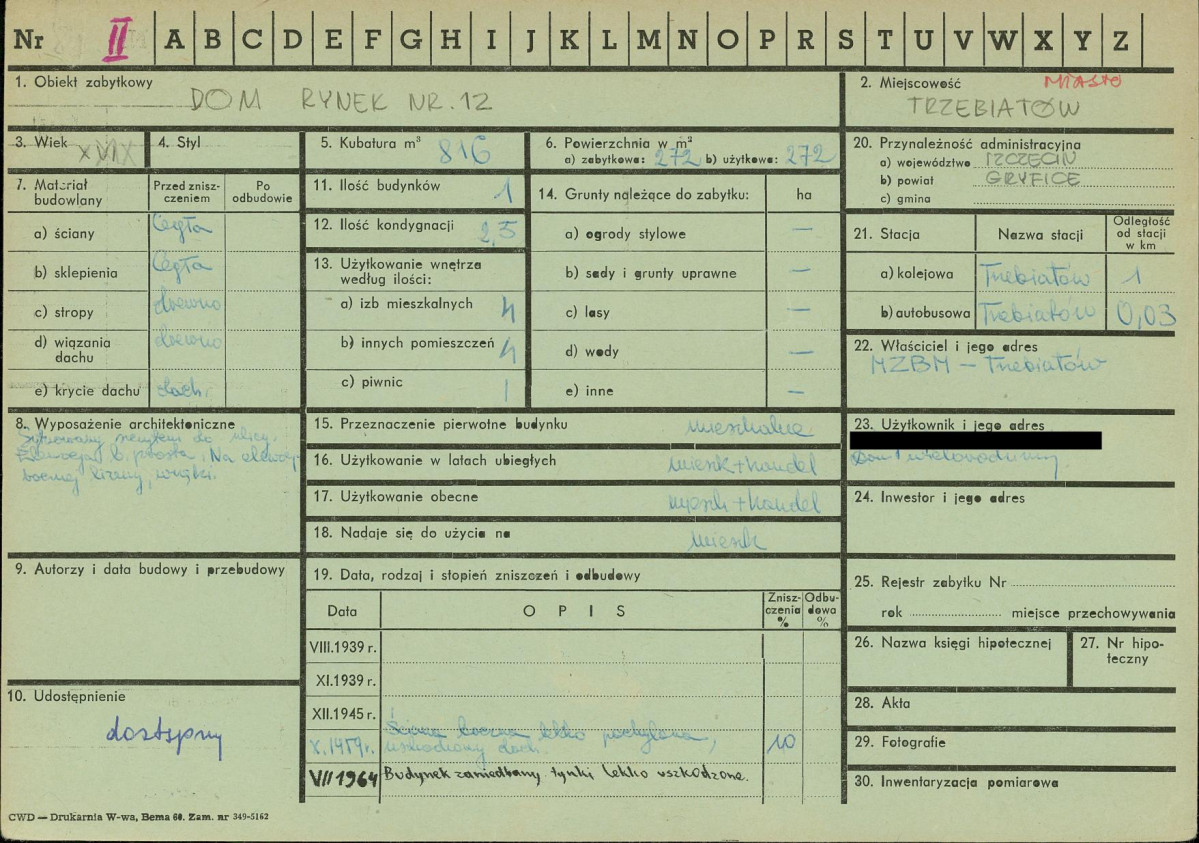 Nr II A B C D E F G H I J K L M N O P R S T U V W X Y Z
1. Obiekt zabytkowy
DOM RYNEK NR. 12
2. Miejscowość MIASTO
TRZEBIATÓW
3. Wiek
4. Styl
5. Kubatura m³ 816
6. Powierzchnia w m²
a) zabytkowa: 272 b) użytkowa: 272
20. Przynależność administracyjna
a) województwo SZCZECIN
b) powiat GRYFICE
c) gmina
7. Materiał budowlany
Przed zniszczeniem
Po odbudowie
a) ściany Cegła
b) sklepienia Cegła
c) stropy drewno
d) wiązania dachu drewno
e) krycie dachu dach.
11. Ilość budynków 1
12. Ilość kondygnacji 2,5
13. Użytkowanie wnętrza według ilości:
a) izb mieszkalnych 4
b) innych pomieszczeń 4
c) piwnic 1
14. Grunty należące do zabytku: ha
a) ogrody stylowe —
b) sady i grunty uprawne —
c) lasy —
d) wody —
e) inne —
21. Stacja
Nazwa stacji
Odległość od stacji w km
a) kolejowa Trzebiatów 1
b) autobusowa Trzebiatów 0,03
22. Właściciel i jego adres
MZBM — Trzebiatów
8. Wyposażenie architektoniczne
szczytem do ulicy.
b. prosta. Na elewacji
bocznej wnęki.
15. Przeznaczenie pierwotne budynku mieszkalne
16. Użytkowanie w latach ubiegłych mieszk + handel
17. Użytkowanie obecne mieszk + handel
18. Nadaje się do użycia na mieszk
23. Użytkownik i jego adres
Dom wielorodzinny
24. Inwestor i jego adres
9. Autorzy i data budowy i przebudowy
19. Data, rodzaj i stopień zniszczeń i odbudowy
Data
OPIS
Zniszczenia %
Odbudowa %
VIII.1939 r.
XI.1939 r.
XII.1945 r.
X.1959r. Ściana boczna lekko pochylona,
uszkodzony dach. 10
VII 1964 Budynek zaniedbany tynki lekko uszkodzone.
25. Rejestr zabytku Nr
rok miejsce przechowywania
26. Nazwa księgi hipotecznej
27. Nr hipoteczny
10. Udostępnienie
dostępny
28. Akta
29. Fotografie
30. Inwentaryzacja pomiarowa
CWD — Drukarnia W-wa, Bema 60. Zam. nr 349-5162